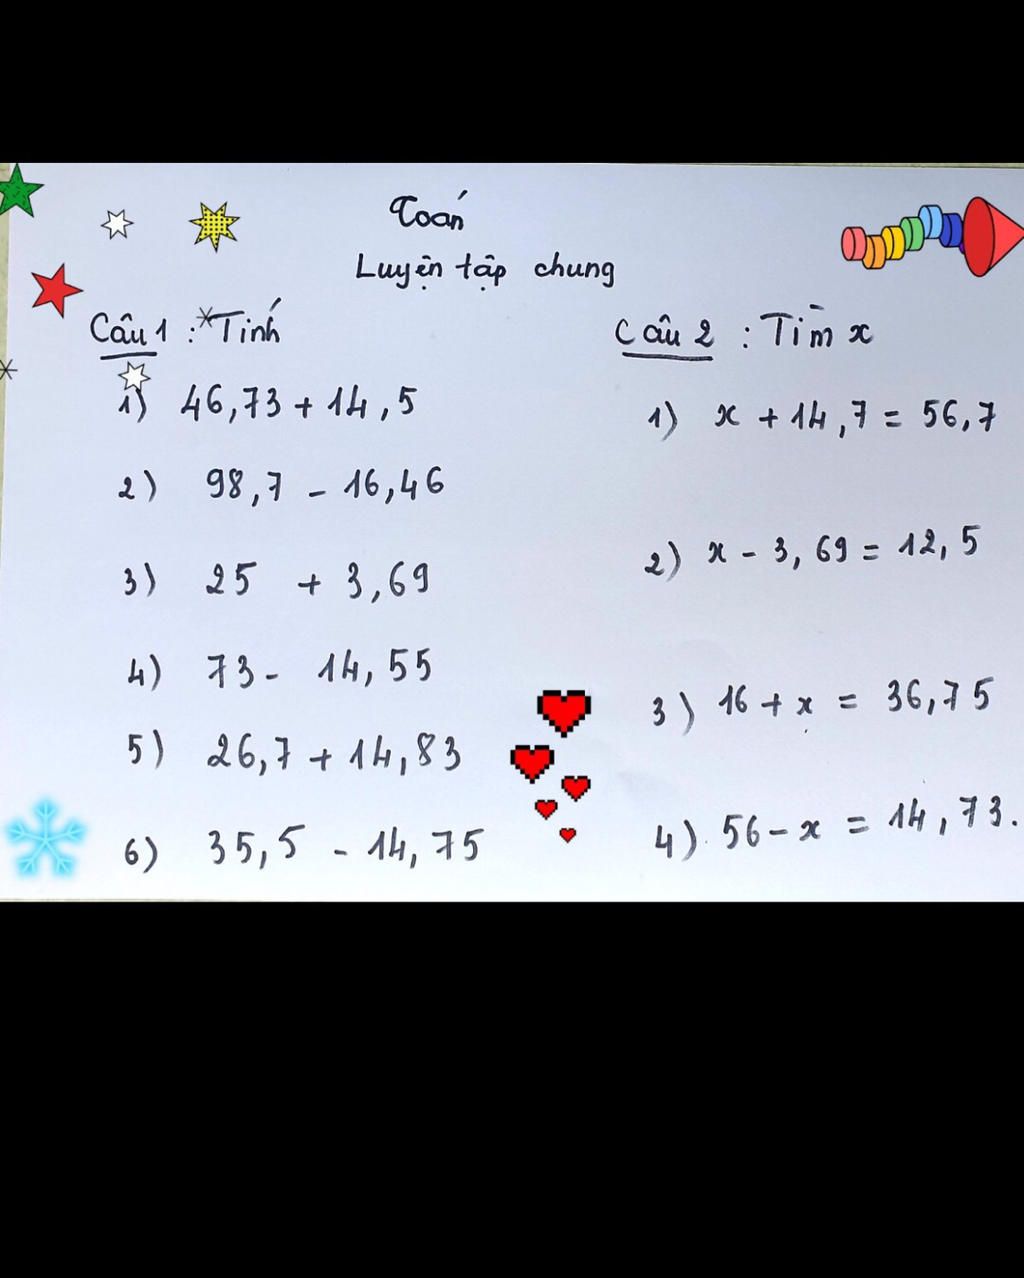 Toán
Luyện tập chung
Câu 1 : Tính
1) 46,73 + 14,5
2) 98,7 - 16,46
3) 25 + 3,69
4) 73 - 14,55
5) 26,7 + 14,83
6) 35,5 - 14,75
Câu 2 : Tìm x
1) x + 14,7 = 56,7
2) x - 3,69 = 12,5
3) 16 + x = 36,75
4) 56 - x = 14,73.